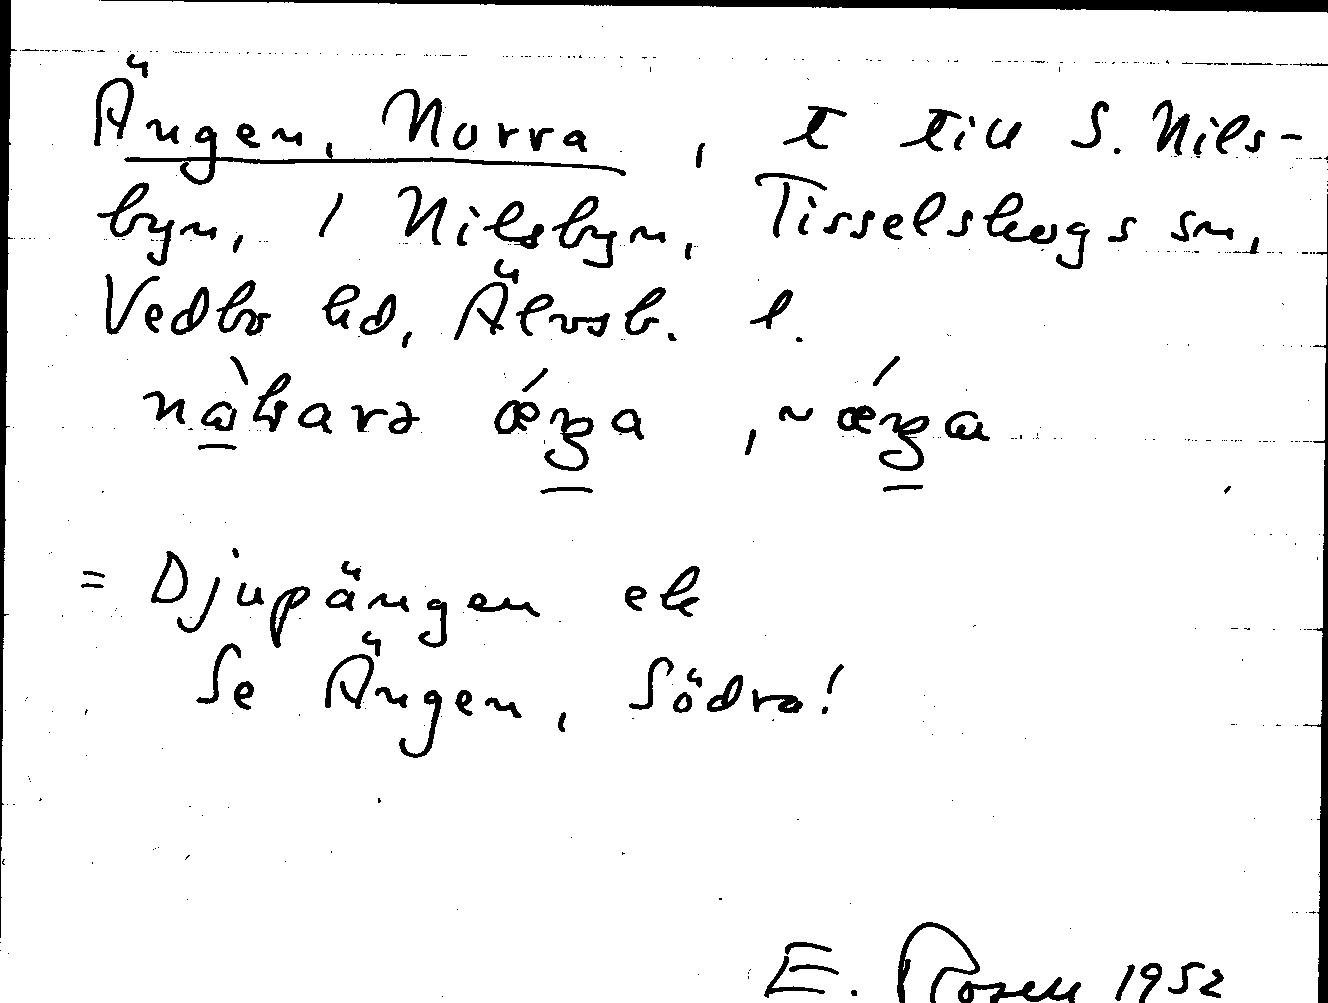 Ängen, Norra, t till S. Nils-
byn, 1 Nilsbyn, Tisselskogs sn,
Vedbo hd, Älvsb. l.
= Djupängen
Se Ängen, Södra!
E. Rosen 1952